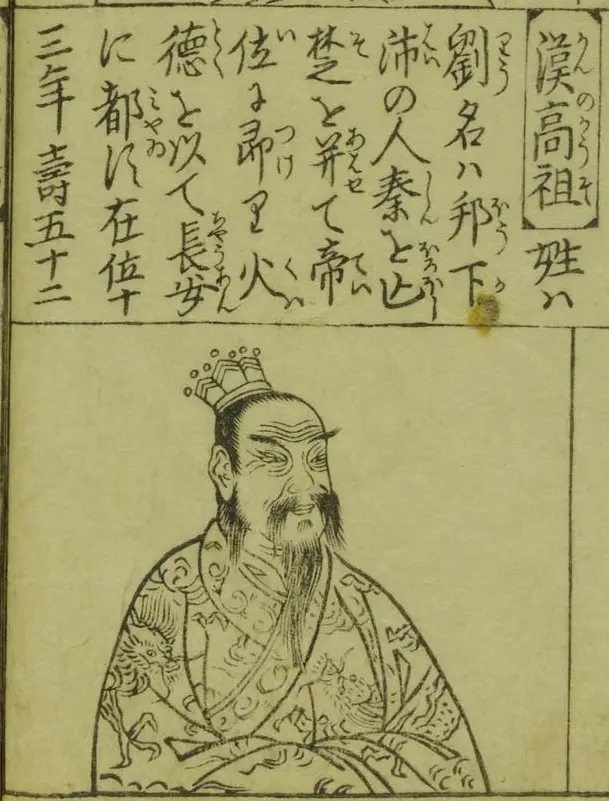 漢高祖 姓ハ
劉名ハ邦下
沛の人秦を亡
楚を并て帝
位に即り火
德を以て長安
に都す在位十
三年壽五十二